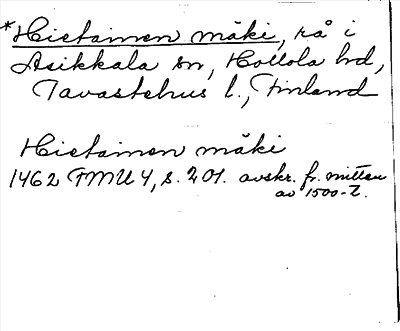 *Hietainen mäki, rå i
Asikkala sn, Hollola hd,
Tavastehus l., Finland
Hietainen mäki
1462 FMU 4, s. 201. avskr. fr. mitten
av 1500-t.